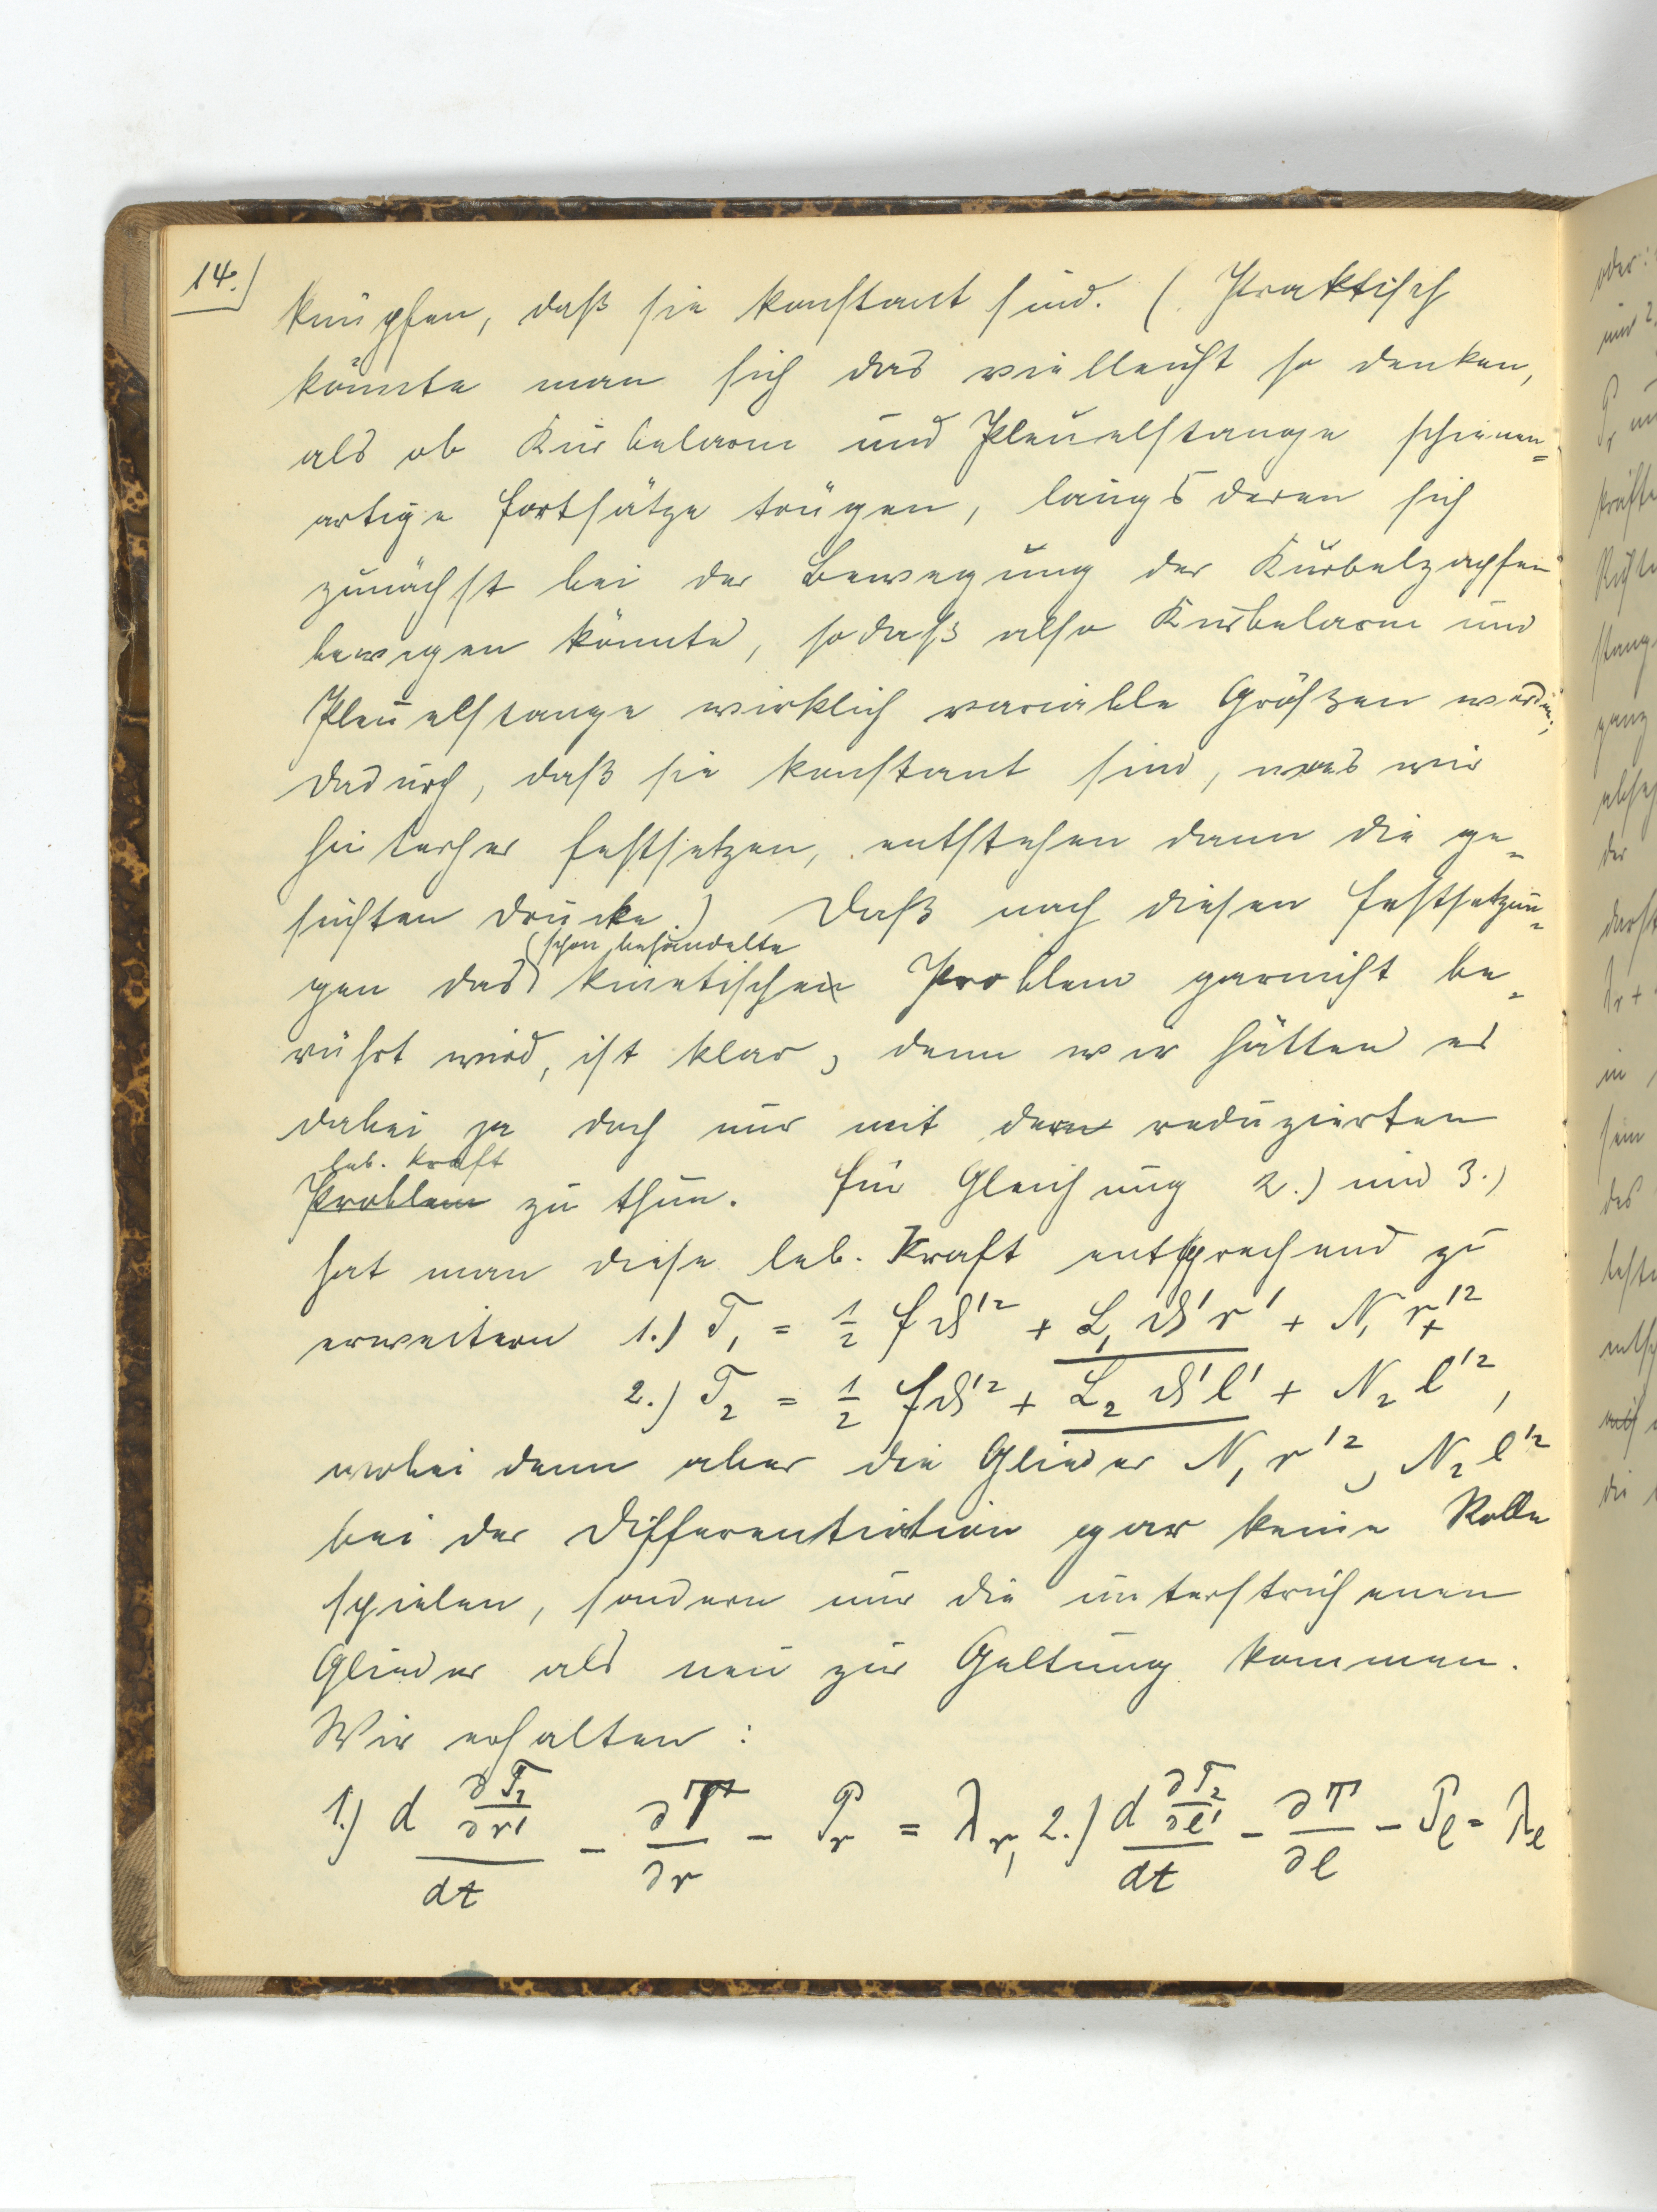 14.)
knüpfen, daß sie konstant sind. (Praktisch
könnte man sich das vielleicht so denken,
als ob Kurbelarm und Pleuelstange schienen=
artige Fortsätze trügen, längs deren sich
zunächst bei der Bewegung der Kurbelzapfen
bewegen könnte, sodaß also Kurbelarm und
Pleuelstange wirklich variable Größen werden;
dadurch, daß sie konstant sind, was wir
hinterher festsetzen, entstehen dann die ge=
suchten Drucke.) Daß nach diesen Festsetzun=
(schon behandelte
gen das kinetische Problem garnicht be=
rührt wird, ist klar, denn wir hätten es
dabei ja doch nur mit der reduzierten
leb. Kraft
Problem zu thun. Für Gleichung 2.) und 3.)
hat man diese leb. Kraft entsprechend zu
erweitern 1.) T₁ = 1/2 f ϑ'² + L₁ ϑ' r' + N₁ r'² +
2.) T₂ = 1/2 f ϑ'² + L₂ ϑ' l' + N₂ l'²,
wobei denn aber die Glieder N₁ r'², N₂ l'²
bei der Differentiation gar keine Rolle
spielen, sondern nur die unterstrichenen
Glieder als neu zur Geltung kommen.
Wir erhalten:
1.) d ∂T₁/∂r' / dt − ∂T/∂r − P_r = λ_r, 2.) d ∂T₂/∂l' / dt − ∂T/∂l − P_l = λ_l